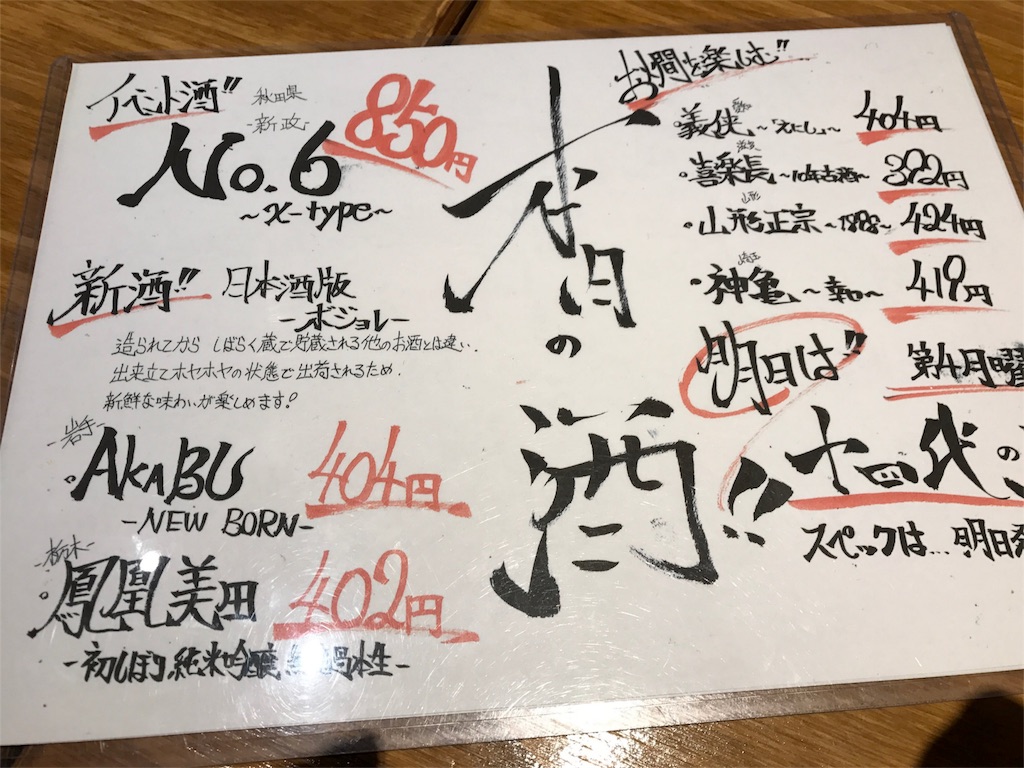 イベント酒!!
秋田県
-新政-
No.6
~X-type~
850円
新酒!! 日本酒版
-ボジョレ-
造られてから しばらく蔵で貯蔵される他のお酒とは違い.
出来立てホヤホヤの状態で出荷されるため.
新鮮な味わいが楽しめます!
-岩手-
AKABU
-NEW BORN-
404円
-栃木-
鳳凰美田
-初しぼり.純米吟醸
402円
本日の
酒!!
お燗を楽しむ!!
義侠 ~えにし~ 404円
滋賀
喜楽長 ~10年古酒~ 382円
山形
山形正宗 ~1898~ 424円
埼玉
神亀 ~幸~ 419円
明日は!! 第4月曜
十四代の
スペックは...明日発